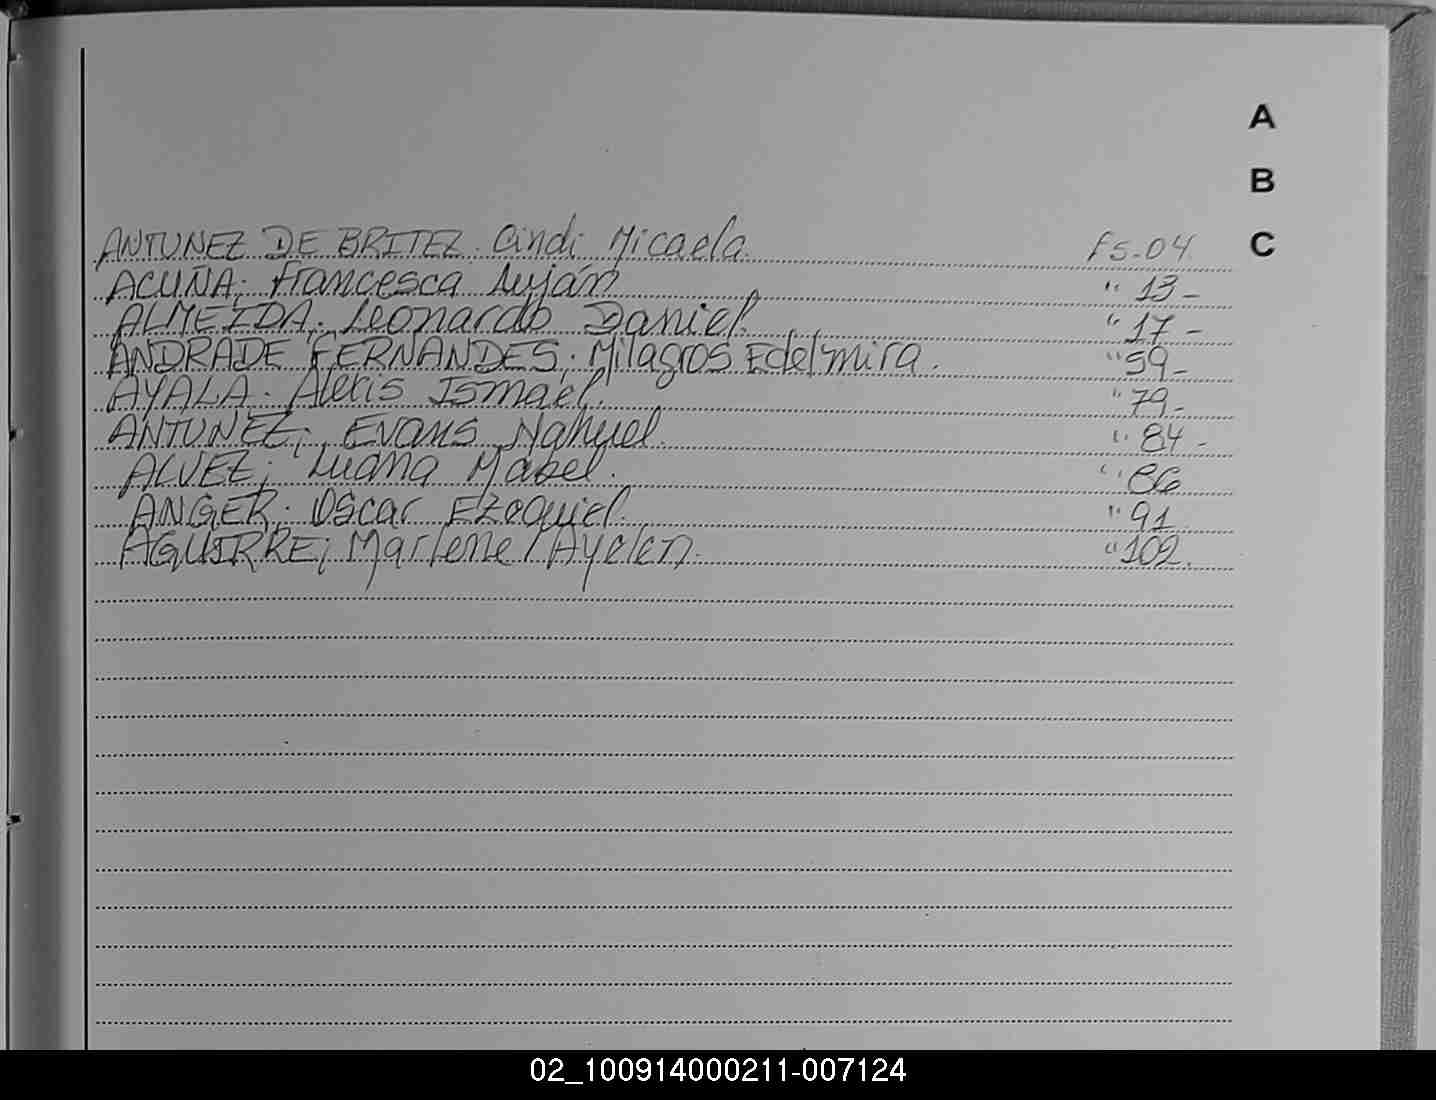 A
B
C
ANTUNEZ DE BRITEZ. Cindi Micaela. fs. 04.
ACUÑA; Francesca Luján " 13-
ALMEIDA; Leonardo Daniel. " 17-
ANDRADE FERNANDES; Milagros Edelmira. " 59-
AYALA. Alexis Ismael. " 79-
ANTUNEZ; Evans Nahuel. " 84-
ALVEZ; Luana Mabel. " 86
ANGER; Oscar Ezequiel. " 91
AGUIRRE; Marlene Ayelen. " 102.
02_100914000211-007124